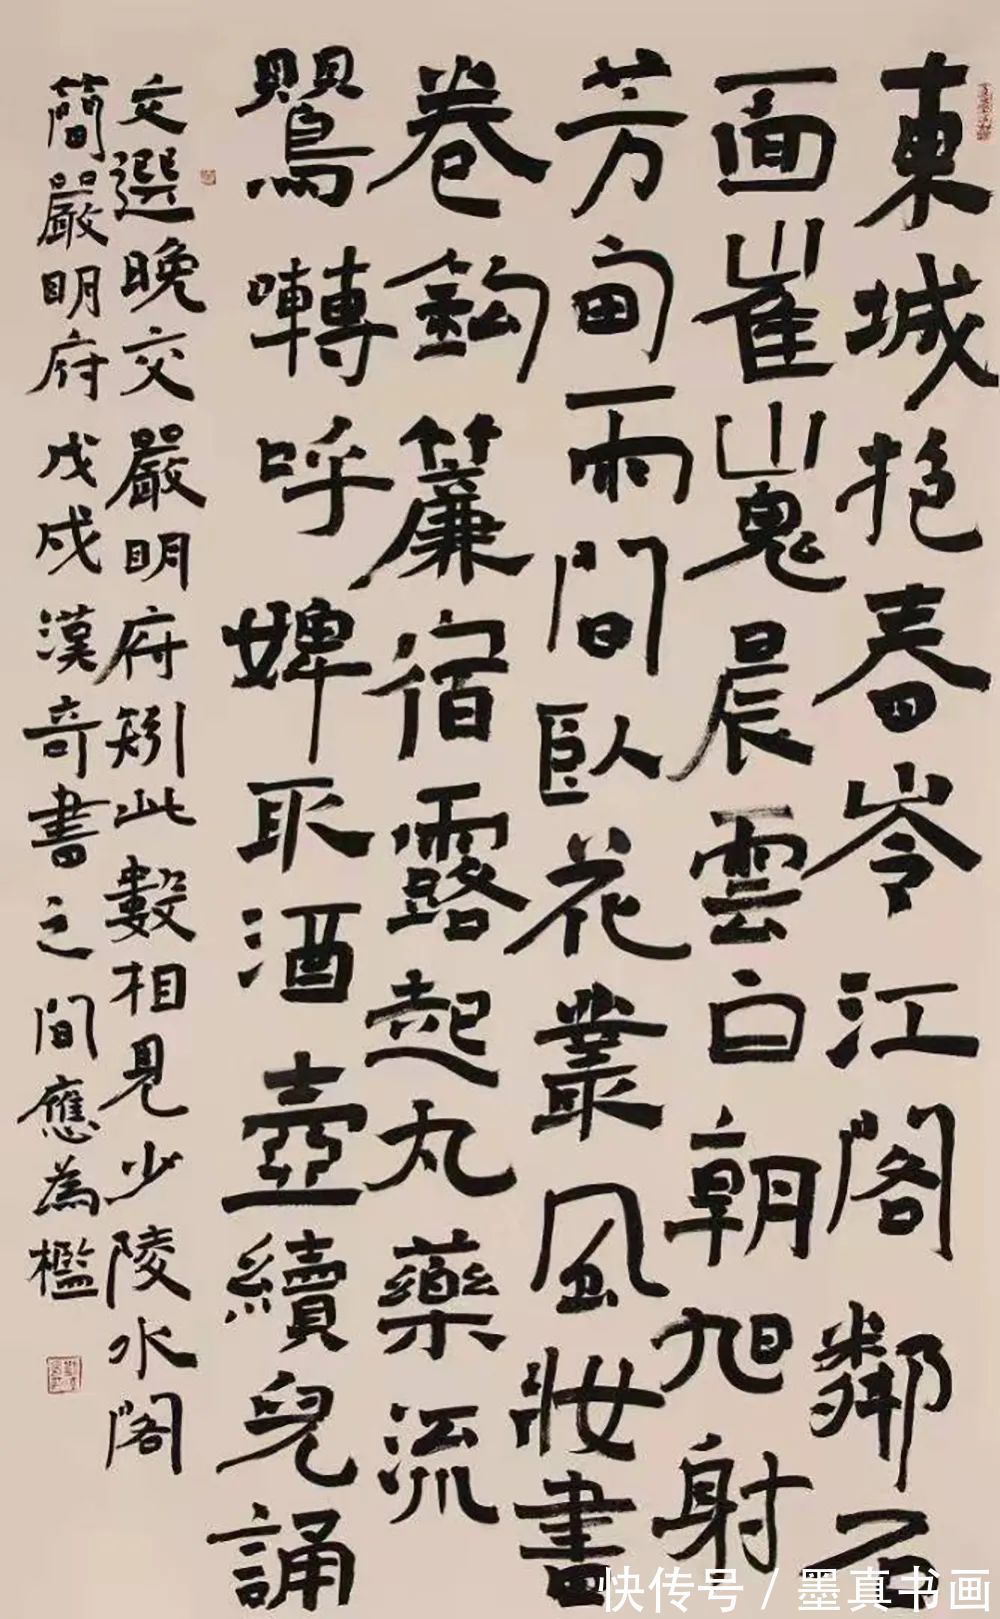 東城抱春岑江閣鄰石
面崔嵬晨雲白朝旭射
芳甸雨間臥花叢風妝書
卷鈎簾宿露起丸藥流
鸎囀呼婢取酒壺續兒誦
文選晚交嚴明府矧此數相見少陵水閣
簡嚴明府戊戌漢奇書之間應為檻
快传号 / 墨真书画